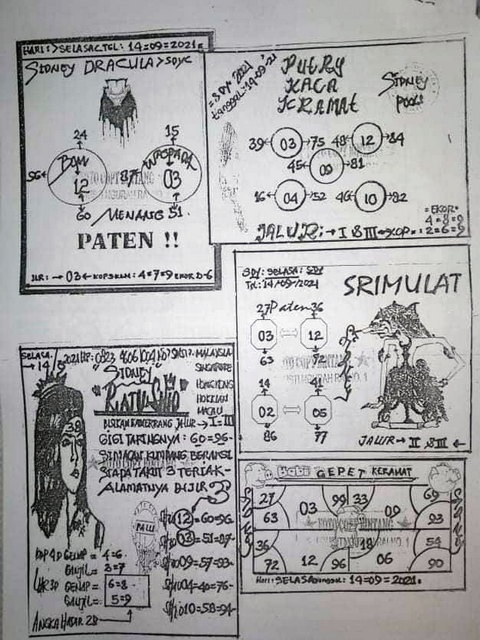 HARI:>SELASA.TGL: 14=09=2021.
SIDNEY DRACULA>SDYC
24
15
56
BOM
12
87
WASPADA
03
60/MENANG
51.
PATEN !!
JLR:→03←KOP 4=7=9 EKOR 0-6
=SDY 2021
TANGGAL-14-09'21
PUTRY
KACA
KRAMAT
SIDNEY
POOLS
39 03 75 48 12 84
45 09 81
16 04 52 46 10 82
=EKOR=
4=8=9
JALUR:→I & III→KOP.:2=6=9
SDY:SELASA:SDY
TGL:14/09/2021
SRIMULAT
27 Paten 36
03 12
63 72
14 41
02 05
86 77
JALUR→II & III ←
SELASA.
→14/9 2021 HP: 0823 4606 1004
MALAYSIA
SINGAPORE
HONGKONG
HOKKIAN
MACAU
"SIDNEY"
RATU
38
JALUR→I=III
GIGI TARINGNYA: 60=96-
SIMACAN KUMBANG BERAKSI
SIAPA TAKUT BTERIAK-
ALAMATNYA DIJLR 3
PALU
12=60=96
03=51=87
09=57=93
04=40=76
010=58=94
KOP 4D GENAP = 4=6
GANJIL = 3=7
GENAP = 6=8
GANJIL = 5=9
ANGKA HASAR 2D
BABI GEPET KERAMAT
27 03 99 33 09 69
63 93
36 18 54
72 12 96 06 90
Hari: SELASA 14=09=2021.